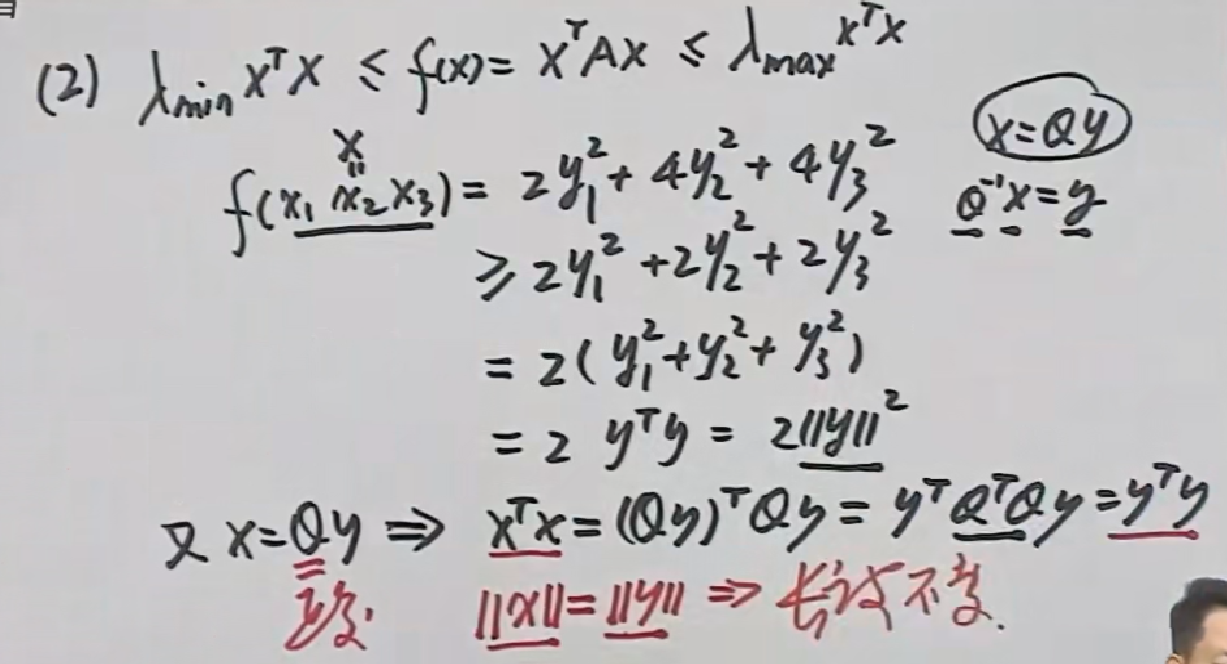 (2) λmin xᵀx ≤ f(x) = xᵀAx ≤ λmax xᵀx
x = Qy
x
॥
f(x₁ x₂ x₃) = 2y₁² + 4y₂² + 4y₃²
Q⁻¹x = y
≥ 2y₁² + 2y₂² + 2y₃²
= 2(y₁² + y₂² + y₃²)
= 2 yᵀy = 2||y||²
又 x = Qy ⇒ xᵀx = (Qy)ᵀQy = yᵀQᵀQy = yᵀy
正交. ||x|| = ||y|| ⇒ 长度不变.